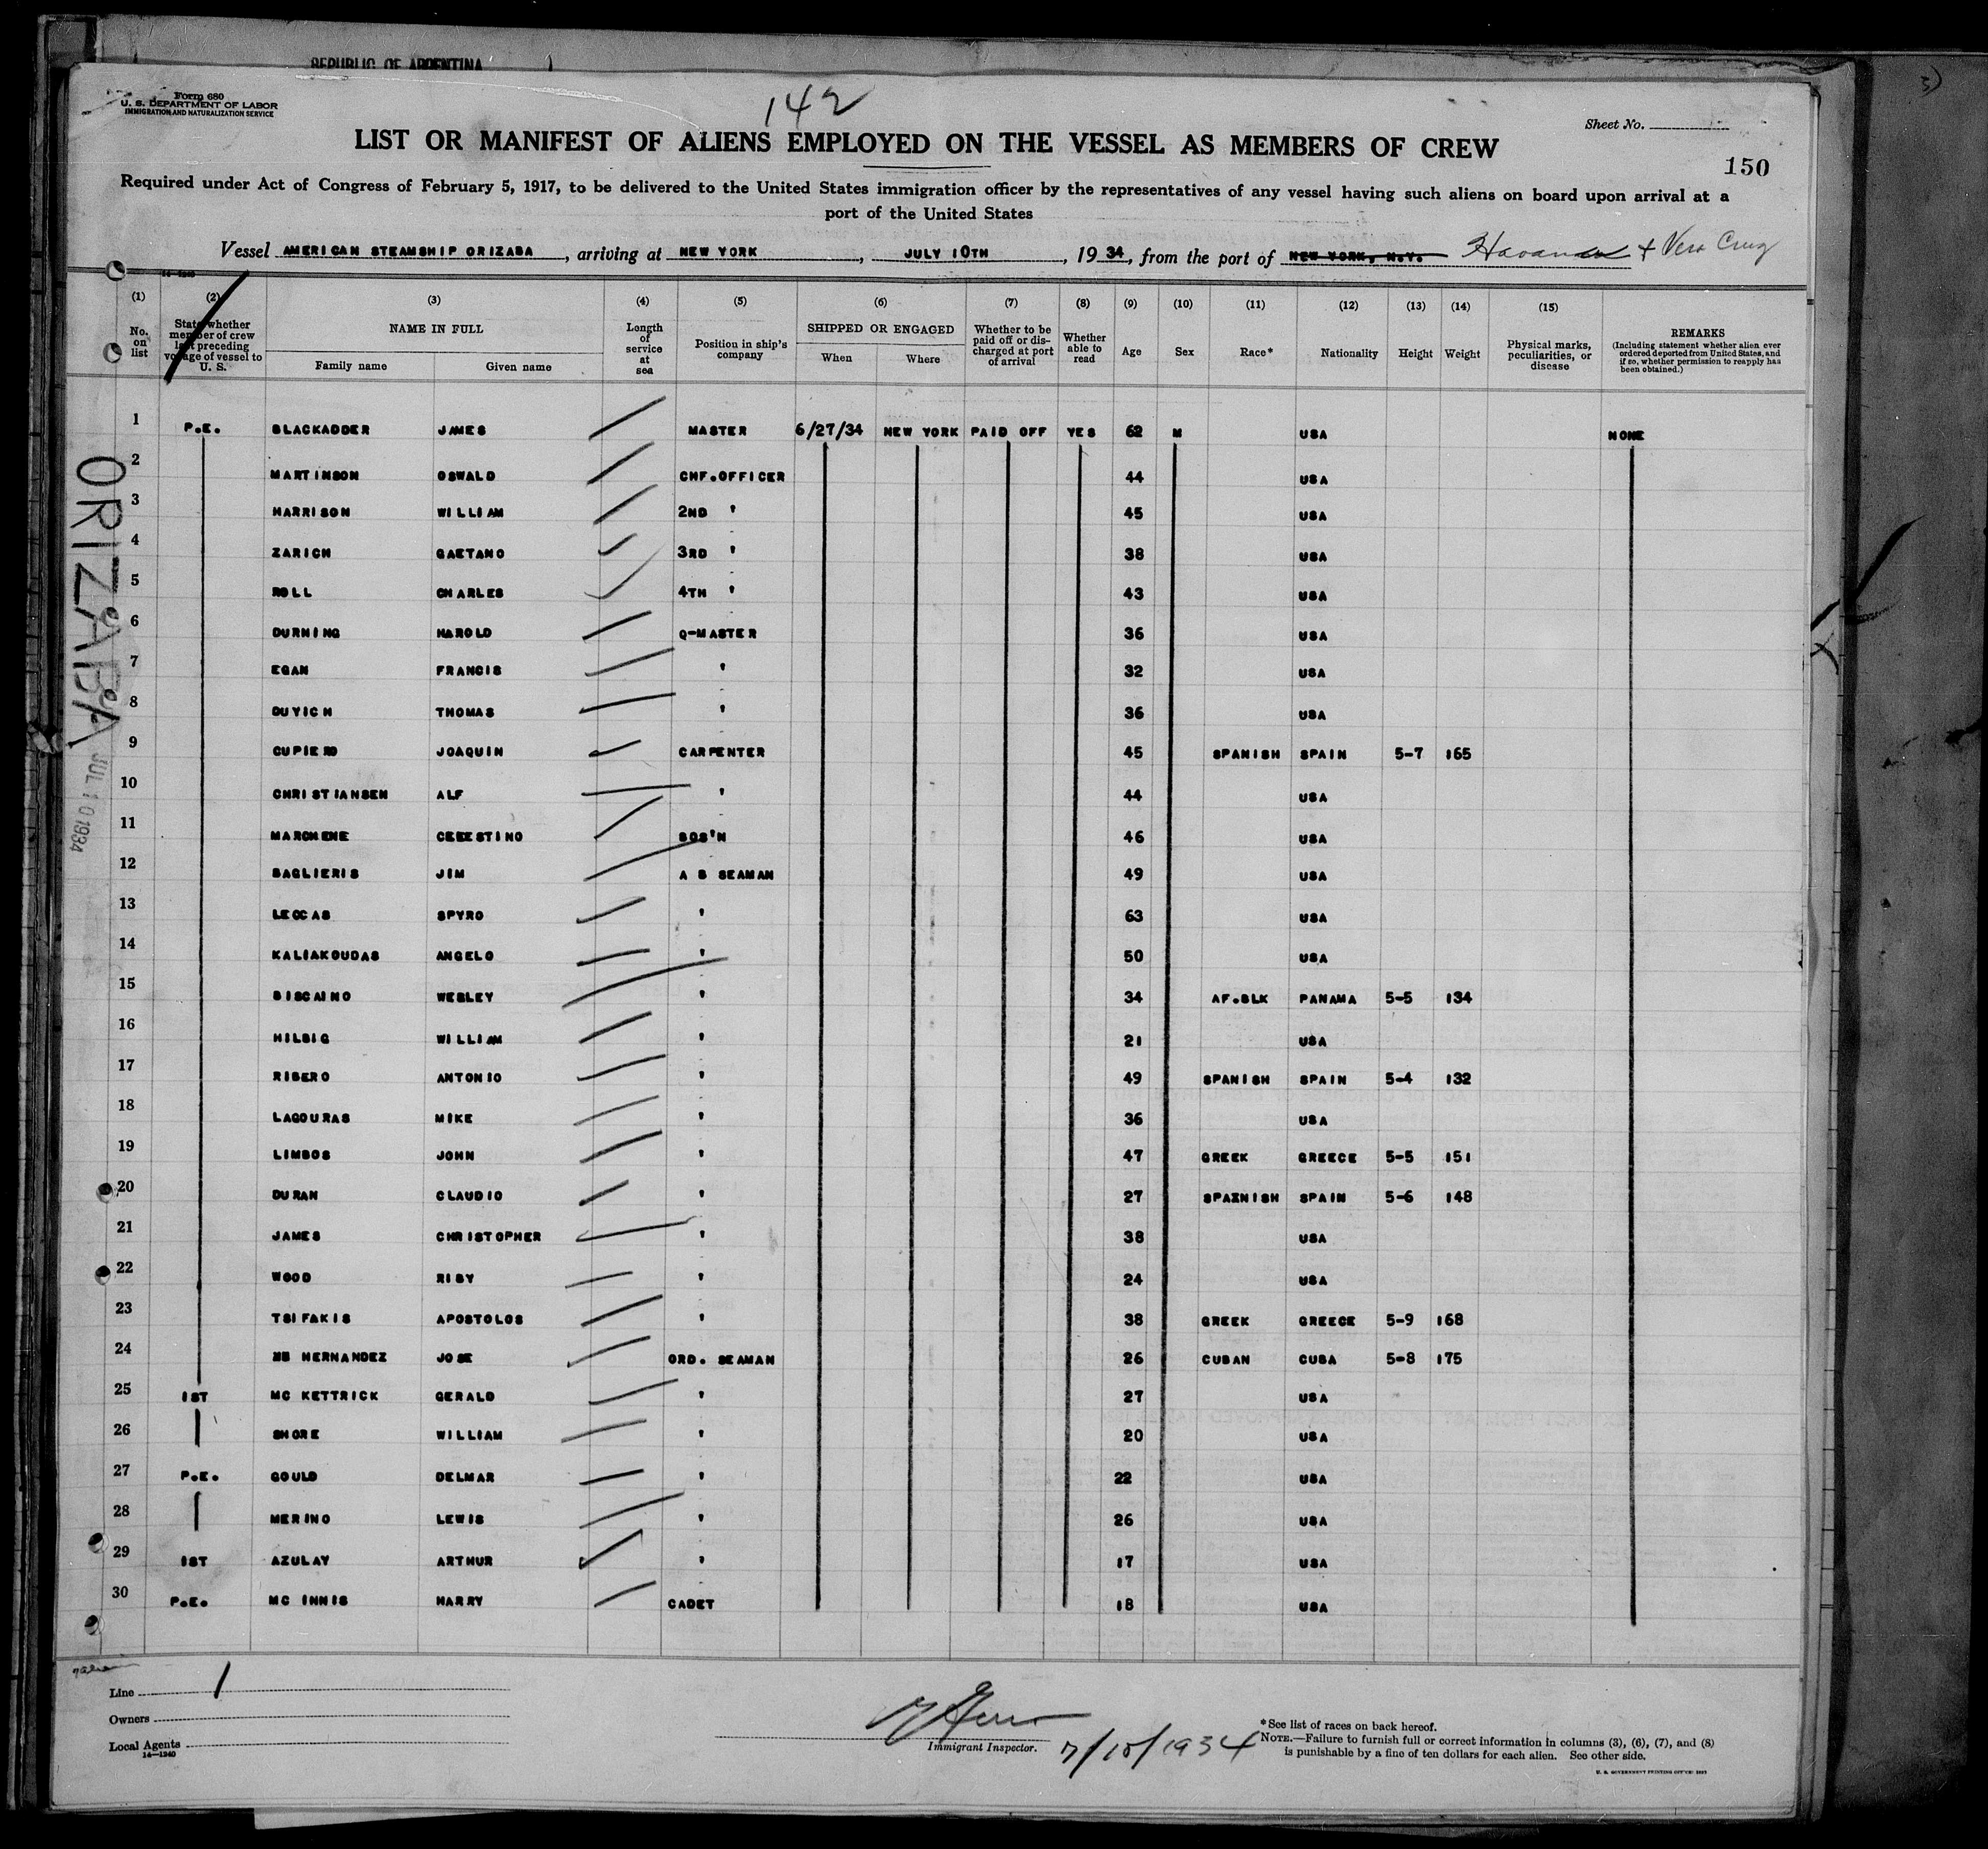 REPUBLIC OF ARGENTINA
Form 680
U. S. DEPARTMENT OF LABOR
IMMIGRATION AND NATURALIZATION SERVICE
142
Sheet No.
LIST OR MANIFEST OF ALIENS EMPLOYED ON THE VESSEL AS MEMBERS OF CREW
150
Required under Act of Congress of February 5, 1917, to be delivered to the United States immigration officer by the representatives of any vessel having such aliens on board upon arrival at a
port of the United States
Vessel AMERICAN STEAMSHIP ORIZABA, arriving at NEW YORK, JULY 10TH, 19 34, from the port of NEW YORK, N.Y. Havana + Vera Cruz
(1) No. on list (2) State whether member of crew last preceding voyage of vessel to U. S. (3) NAME IN FULL Family name Given name (4) Length of service at sea (5) Position in ship's company (6) SHIPPED OR ENGAGED When Where (7) Whether to be paid off or discharged at port of arrival (8) Whether able to read (9) Age (10) Sex (11) Race* (12) Nationality (13) Height (14) Weight (15) Physical marks, peculiarities, or disease REMARKS (Including statement whether alien ever ordered deported from United States, and if so, whether permission to reapply has been obtained.)
1 P.E. BLACKADDER JAMES MASTER 6/27/34 NEW YORK PAID OFF YES 62 M USA NONE
2 MARTINSON OSWALD CHF.OFFICER 44 USA
3 HARRISON WILLIAM 2ND ' 45 USA
4 ZARICH GAETANO 3RD ' 38 USA
5 ROLL CHARLES 4TH ' 43 USA
6 DURNING HAROLD Q-MASTER 36 USA
7 EGAN FRANCIS ' 32 USA
8 DUYICH THOMAS ' 36 USA
9 CUPIERO JOAQUIN CARPENTER 45 SPANISH SPAIN 5-7 165
10 CHRISTIANSEN ALF ' 44 USA
11 MARCHENE CELESTINO BOS'N 46 USA
12 BAGLIERIS JIM A B SEAMAN 49 USA
13 LECCAS SPYRO ' 63 USA
14 KALIAKOUDAS ANGELO ' 50 USA
15 BISCAINO WESLEY ' 34 AF.BLK PANAMA 5-5 134
16 HILBIG WILLIAM ' 21 USA
17 RIBERO ANTONIO ' 49 SPANISH SPAIN 5-4 132
18 LAGOURAS MIKE ' 36 USA
19 LIMBOS JOHN ' 47 GREEK GREECE 5-5 151
20 DURAN CLAUDIO ' 27 SPAINISH SPAIN 5-6 148
21 JAMES CHRISTOPHER ' 38 USA
22 WOOD RIBY ' 24 USA
23 TSIFAKIS APOSTOLOS ' 38 GREEK GREECE 5-9 168
24 HERNANDEZ JOSE ORD. SEAMAN 26 CUBAN CUBA 5-8 175
25 1ST MC KETTRICK GERALD ' 27 USA
26 SHORE WILLIAM ' 20 USA
27 P.E. GOULD DELMAR ' 22 USA
28 MERINO LEWIS ' 26 USA
29 1ST AZULAY ARTHUR ' 17 USA
30 P.E. MC INNIS HARRY CADET 18 USA
ORIZABA
JUL 10 1934
Line
Owners
Local Agents
14—1240
Immigrant Inspector.
7/10/1934
*See list of races on back hereof.
NOTE.—Failure to furnish full or correct information in columns (3), (6), (7), and (8)
is punishable by a fine of ten dollars for each alien. See other side.